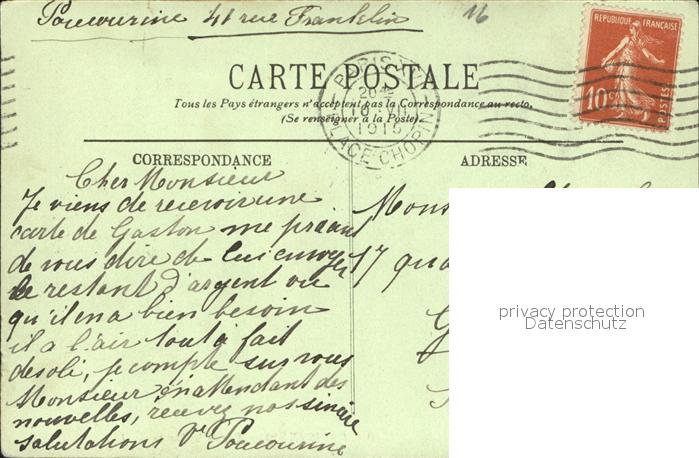 Poucourine 41 rue Franklin
16
RÉPUBLIQUE FRANÇAISE
10c
POSTES
CARTE POSTALE
Tous les Pays étrangers n'acceptent pas la Correspondance au recto.
(Se renseigner à la Poste).
PARIS
10 VII
1916
PLACE CHOPIN
CORRESPONDANCE
Cher Monsieur
Je viens de recevoir une
carte de Gaston me priant
de vous dire de lui envoyer
le restant d'argent ou
qu'il en a bien besoin
il a l'air tout à fait
desolé, je compte sur vous
Monsieur en attendant des
nouvelles, recevez nos sincère
salutations Ve Poucourine
ADRESSE
Mons
17 qua
privacy protection
Datenschutz